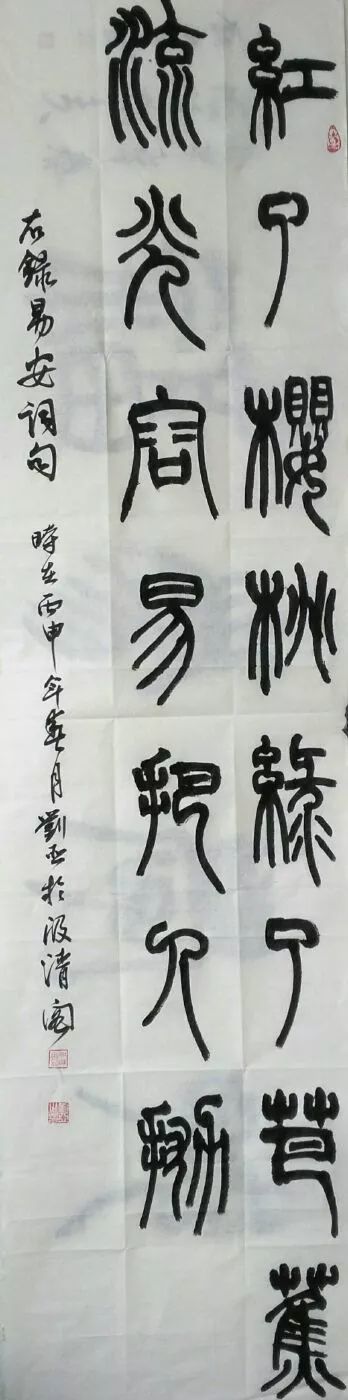 紅了櫻桃綠了芭蕉
流光容易把人拋
右錄易安詞句 時在丙申年春月劉於汲清閣